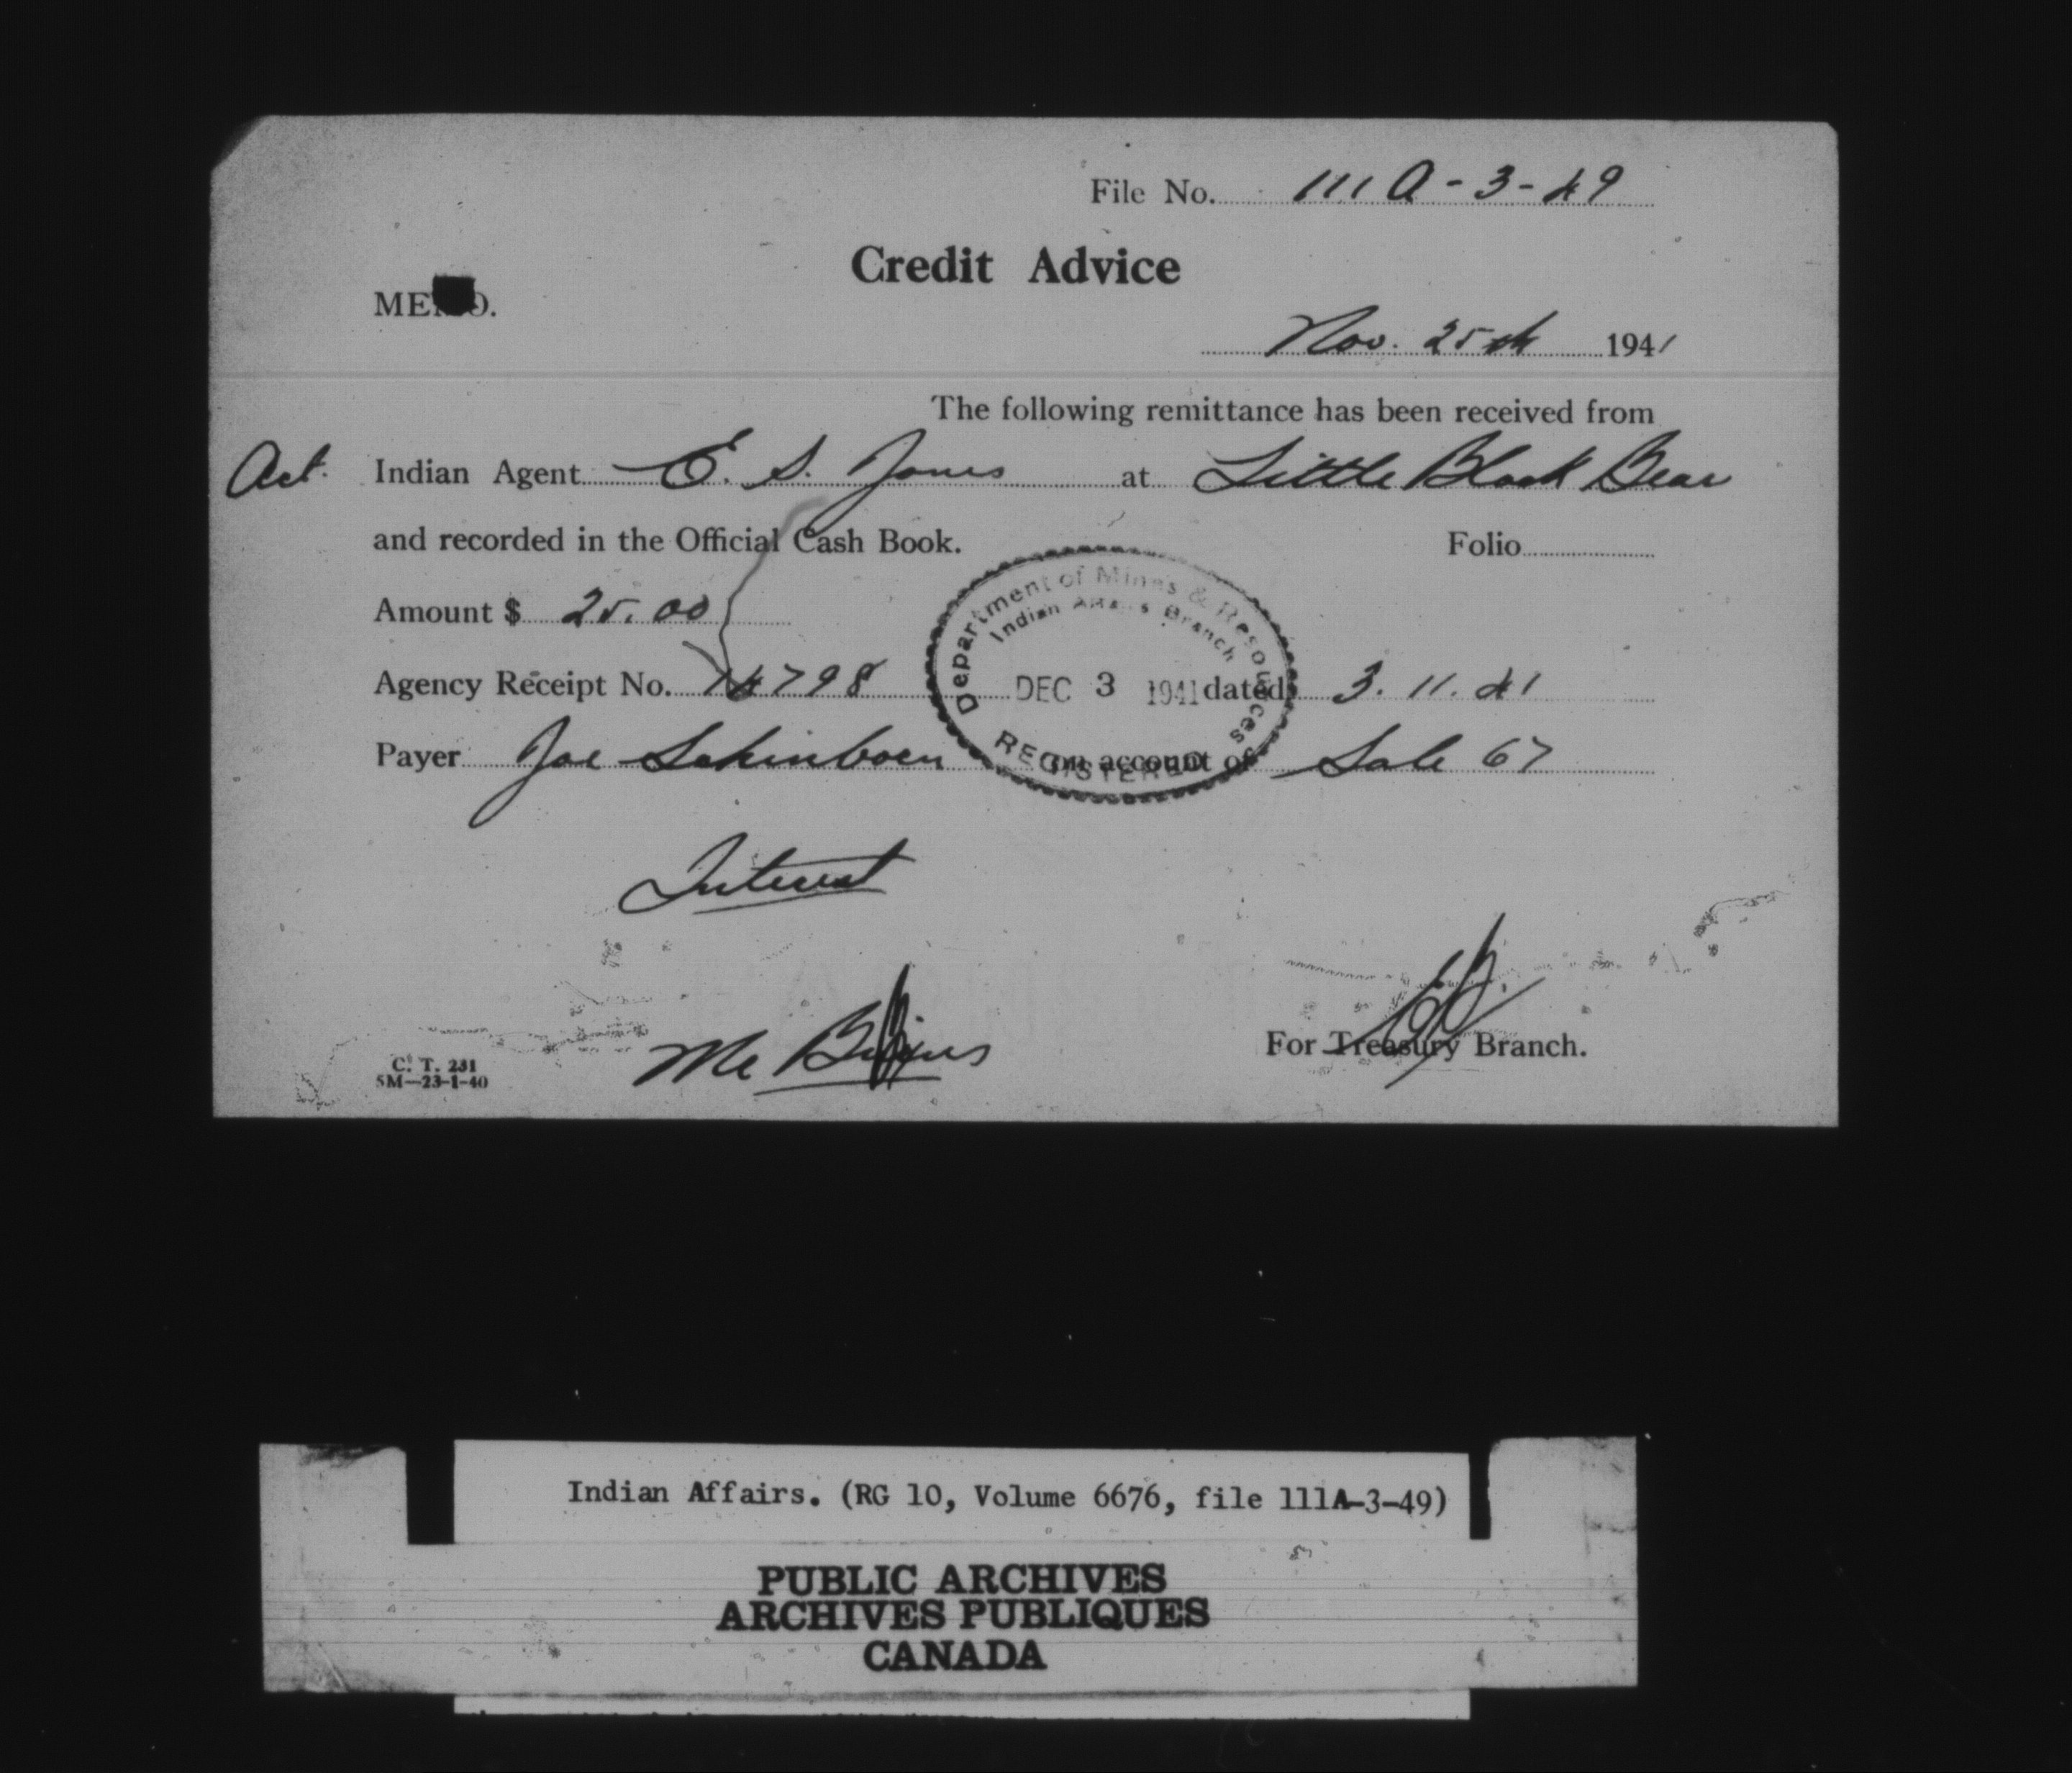 File No. 111A-3-49
Credit Advice
MEMO.
Nov. 25th 1941
The following remittance has been received from
Act. Indian Agent E. S. Jones at Little Black Bear
and recorded in the Official Cash Book. Folio
Amount $ 25.00
Department of Mines & Resources
Indian Affairs Branch
DEC 3 1941
REGISTERED
Agency Receipt No. 14798 dated 3.11.41
Payer Joe on account of Sale 67
Interest
Mc
For Treasury Branch.
C. T. 231
5M-23-1-40
Indian Affairs. (RG 10, Volume 6676, file 111A-3-49)
PUBLIC ARCHIVES
ARCHIVES PUBLIQUES
CANADA